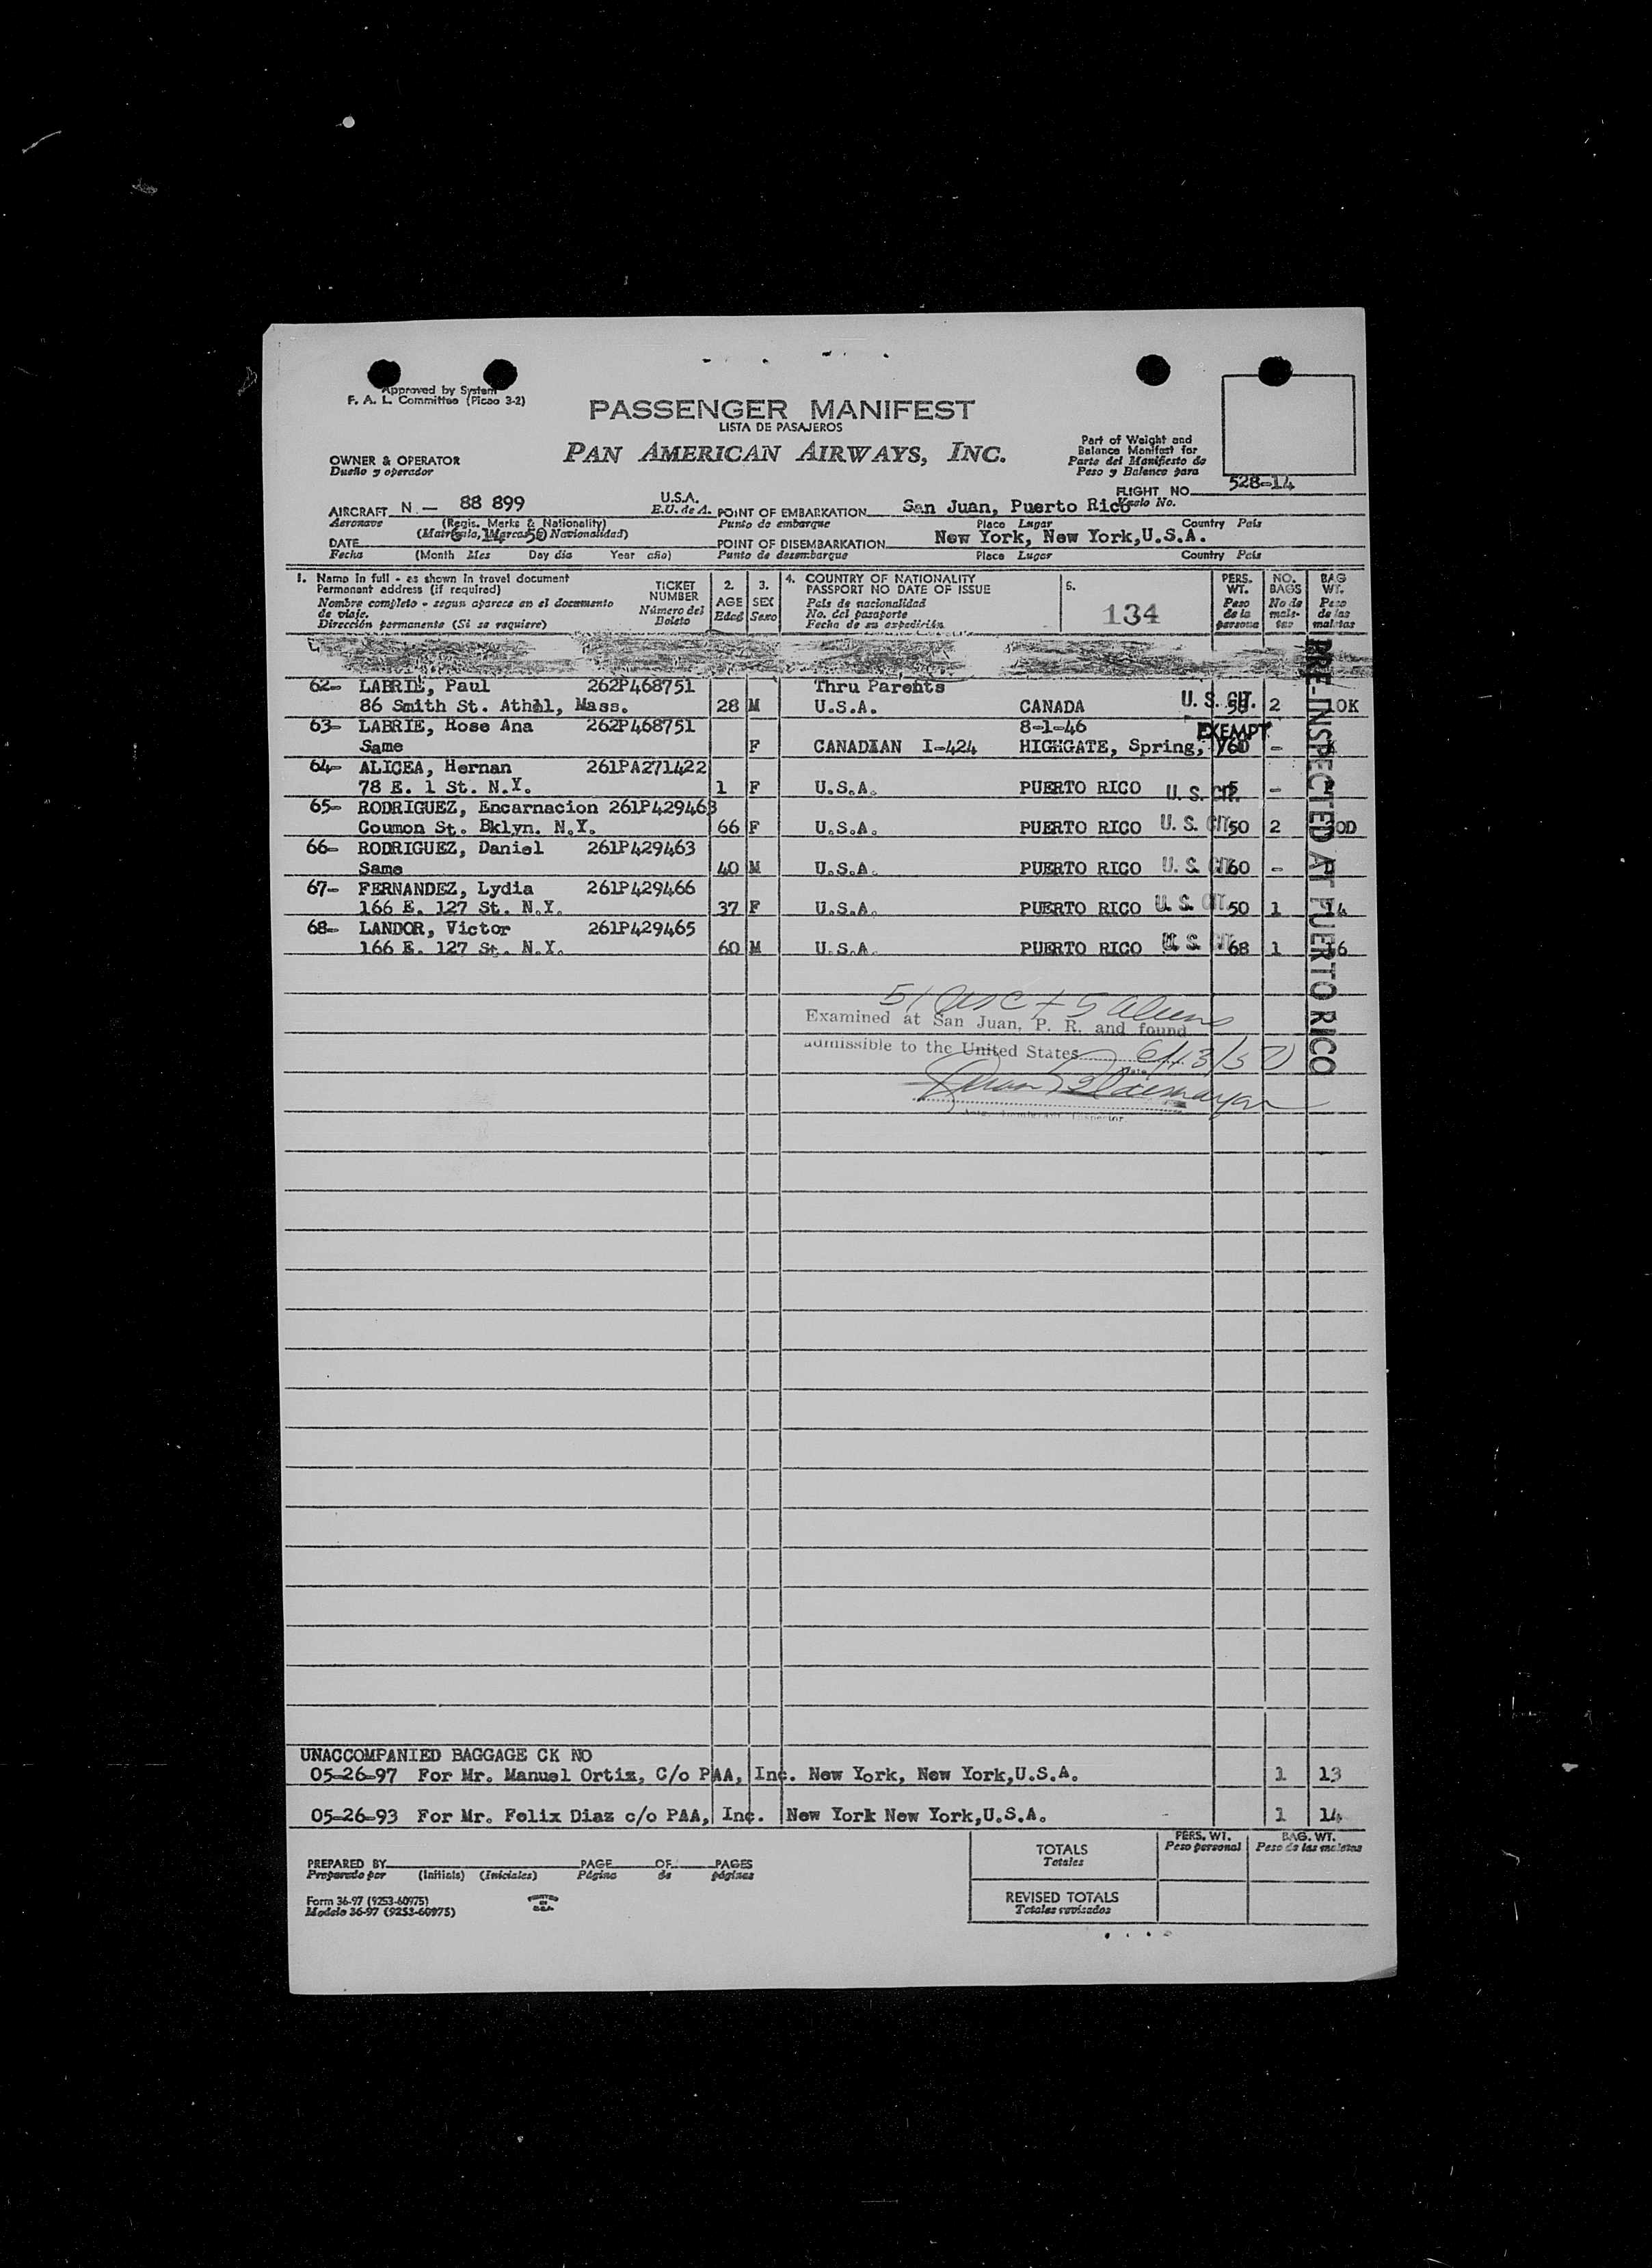 Approved by System
F. A. L. Committee (Picao 3-2)
PASSENGER MANIFEST
LISTA DE PASAJEROS
PAN AMERICAN AIRWAYS, INC.
OWNER & OPERATOR
Dueño y operador
Part of Weight and
Balance Manifest for
Parte del Manifiesto de
Peso y Balance para
FLIGHT NO. 528-14
Vuelo No.
AIRCRAFT N - 88 899 U.S.A. POINT OF EMBARKATION San Juan, Puerto Rico
Aeronave (Regis. Marks & Nationality) E.U. de A. Punto de embarque Place Lugar Country País
(Matrícula, Marcas y Nacionalidad)
DATE 6 14 50 POINT OF DISEMBARKATION New York, New York,U.S.A.
Fecha (Month Mes Day día Year año) Punto de desembarque Place Lugar Country País
1. Name in full - as shown in travel document
Permanent address (if required)
Nombre completo - segun aparece en el documento
de viaje.
Dirección permanente (Si se requiere)
TICKET
NUMBER
Número del
Boleto
2.
AGE
Edad
3.
SEX
Sexo
4. COUNTRY OF NATIONALITY
PASSPORT NO DATE OF ISSUE
País de nacionalidad
No. del pasaporte
Fecha de su expedición
5.
134
PERS.
WT.
Peso
de la
persona
NO.
BAGS
No de
male-
tas
BAG
WT.
Peso
de las
maletas
62- LABRIE, Paul 262P468751 Thru Parents
86 Smith St. Athol, Mass. 28 M U.S.A. CANADA U. S. CIT. 2 10K
63- LABRIE, Rose Ana 262P468751 8-1-46 EXEMPT
Same F CANADIAN I-424 HIGHGATE, Spring, 60 -
64- ALICEA, Hernan 261PA271422
78 E. 1 St. N.Y. 1 F U.S.A. PUERTO RICO U. S. CIT. -
65- RODRIGUEZ, Encarnacion 261P429463
Coumon St. Bklyn. N.Y. 66 F U.S.A. PUERTO RICO U. S. CIT. 50 2
66- RODRIGUEZ, Daniel 261P429463
Same 40 M U.S.A. PUERTO RICO U. S. CIT. 60 -
67- FERNANDEZ, Lydia 261P429466
166 E. 127 St. N.Y. 37 F U.S.A. PUERTO RICO U. S. CIT. 50 1
68- LANDOR, Victor 261P429465
166 E. 127 St. N.Y. 60 M U.S.A. PUERTO RICO U. S. CIT. 68 1
PRE-INSPECTED AT PUERTO RICO
51 USC + 5 aliens
Examined at San Juan, P. R. and found
admissible to the United States 6/13/50
Date
Inspector
UNACCOMPANIED BAGGAGE CK NO
05-26-97 For Mr. Manuel Ortiz, C/o PAA, Inc. New York, New York,U.S.A. 1 13
05-26-93 For Mr. Felix Diaz c/o PAA, Inc. New York New York,U.S.A. 1 14
PREPARED BY PAGE OF PAGES
Preparado por (Initials) (Iniciales) Página de páginas
TOTALS
Totales
PERS. WT.
Peso personal
BAG. WT.
Peso de las maletas
REVISED TOTALS
Totales revisados
Form 36-97 (9253-60975)
Modelo 36-97 (9253-60975)
PRINTED
IN
U.S.A.